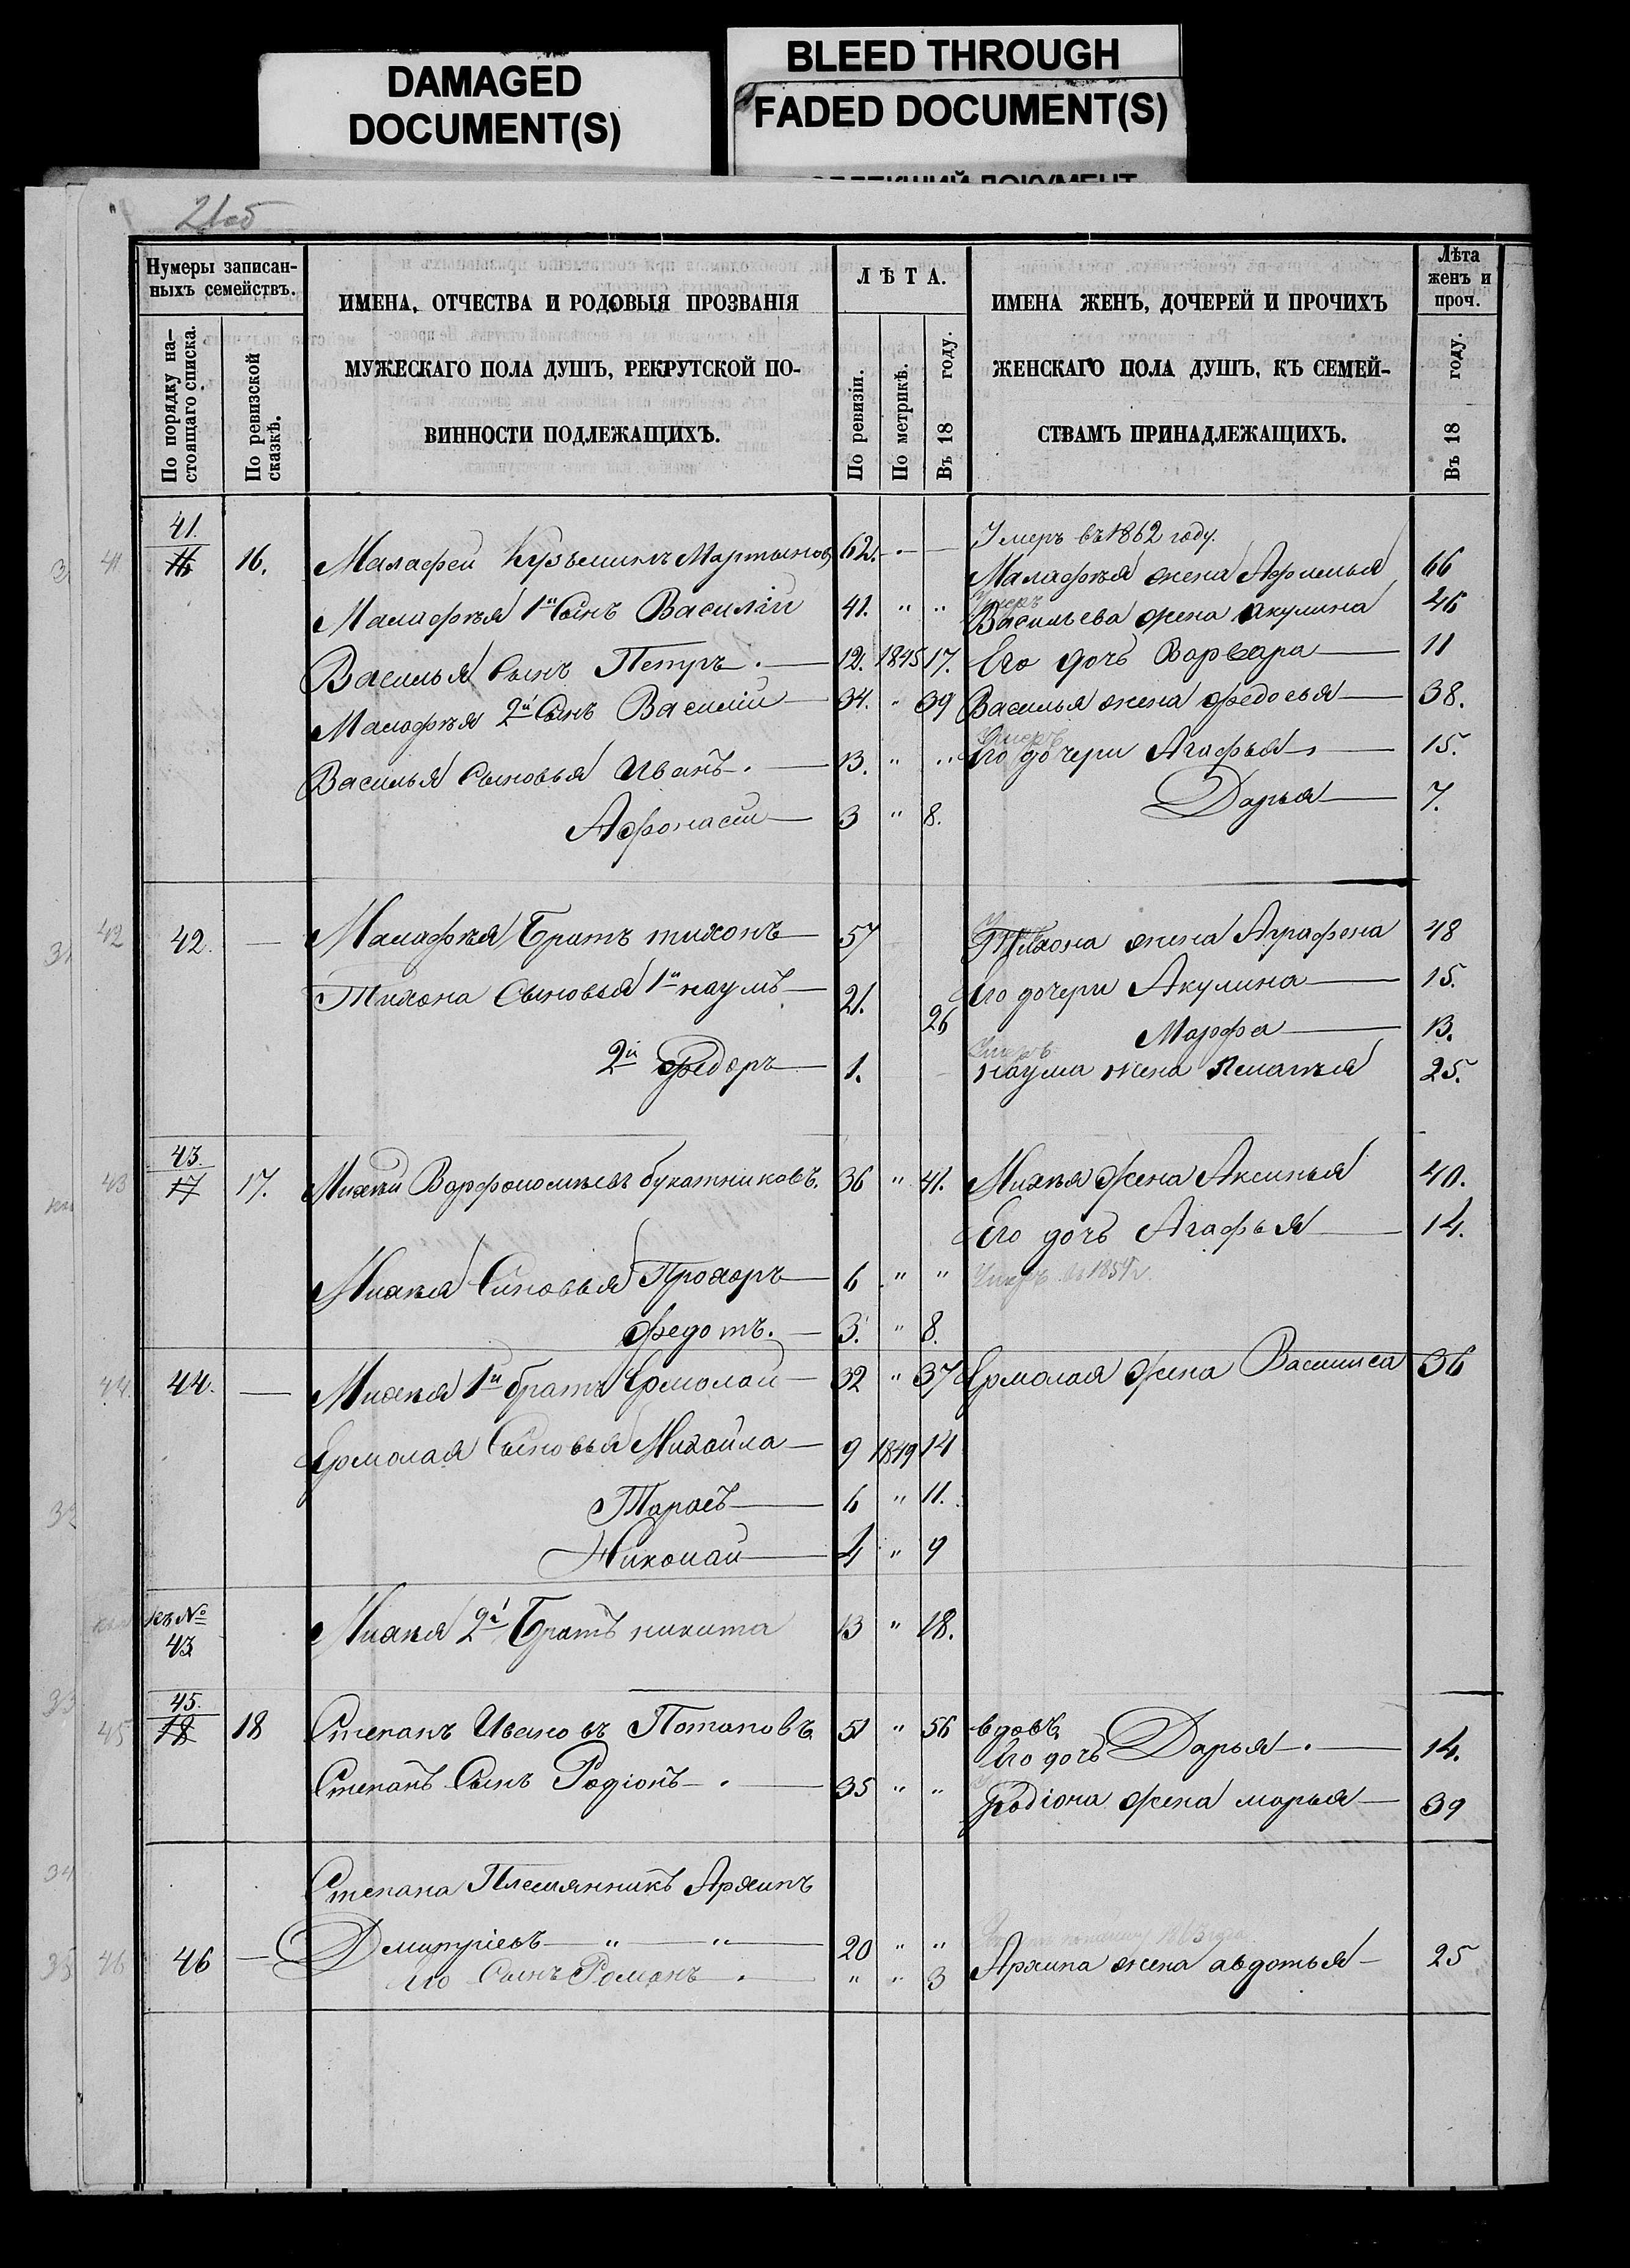 DAMAGED
DOCUMENT(S)
BLEED THROUGH
FADED DOCUMENT(S)
21об
Нумеры записан-
ныхъ семействъ.
По порядку на-
стоящаго списка.
По ревизской
сказкѣ.
ИМЕНА, ОТЧЕСТВА И РОДОВЫЯ ПРОЗВАНІЯ
МУЖЕСКАГО ПОЛА ДУШЪ, РЕКРУТСКОЙ ПО-
ВИННОСТИ ПОДЛЕЖАЩИХЪ.
ЛѢТА.
По ревизіи.
По метрикѣ.
Въ 18 году.
ИМЕНА ЖЕНЪ, ДОЧЕРЕЙ И ПРОЧИХЪ
ЖЕНСКАГО ПОЛА ДУШЪ, КЪ СЕМЕЙ-
СТВАМЪ ПРИНАДЛЕЖАЩИХЪ.
Лѣта
женъ и
проч.
Въ 18 году.
Умеръ въ 1862 году.
41. 16 16. Малафей Кузьминъ Мартыновъ 62. Малафѣя жена Афимья 66
Умеръ
Малафѣя 1й Сынъ Василій 41. " " Васильева жена Акулина 46
Василья сынъ Петръ. 12. 1845 17. Его дочь Варвара 11
Малафѣя 2й Сынъ Василій 34. " 39 Василья жена Федосья 38.
Умеръ
Василья Сыновья Иванъ. 13. " " Его дочери Агафья 15.
Афонасій 3 " 8. Дарья 7.
42 42. Малафѣя Братъ тихонъ 57 Тихона жена Аграфена 48
Тихона Сыновья 1й наумъ 21. 26 Его дочери Акулина 15.
Марфа 13.
Умеръ
2й Федоръ 1. наума жена Пелагѣя 25.
43 43. 17 17. Михѣй Варфоломѣевъ букатниковъ. 36 " 41. Михѣя жена Аксинья 40.
Его дочь Агафья 14.
Михѣя Сыновья Прохоръ 6 " " Умеръ въ 1859 г.
Федотъ. 3. " 8.
44. 44. Михѣя 1й братъ Ермолай 32 " 37 Ермолая жена Василиса 36
Ермолая Сыновья Михайла 9 1849 14
Тарасъ 6 " 11.
Николай 4 " 9
къ №
43 Михѣя 2й Братъ никита 13 " 18.
45 45. 18 18 Степанъ Ивановъ Потаповъ 51 " 56 вдовъ
Его дочь Дарья. 14.
Степанъ Сынъ Родіонъ. 35 " " Родіона жена марья 39
Степана Племянникъ Архипъ
46 46 Дмитріевъ " " 20 " " Архипа жена авдотья 25
его Сынъ Романъ. " " 3